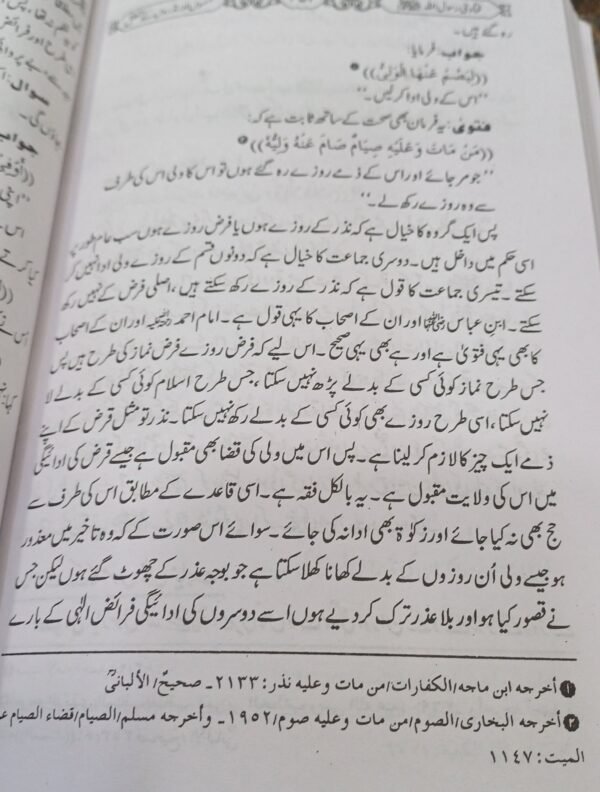 رہ گئے ہیں۔
جواب: فرمایا:
((لِيَصُمْ عَنْهَا الْوَلِيُّ)) ❶
’’اس کے ولی ادا کر لیں۔‘‘
فتویٰ: یہ فرمان بھی صحت کے ساتھ ثابت ہے کہ:
((مَنْ مَاتَ وَعَلَيْهِ صِيَامٌ صَامَ عَنْهُ وَلِيُّهُ)) ❷
’’جو مر جائے اور اس کے ذمے روزے رہ گئے ہوں تو اس کا ولی اس کی طرف
سے وہ روزے رکھ لے۔‘‘
پس ایک گروہ کا خیال ہے کہ نذر کے روزے ہوں یا فرض روزے ہوں سب عام طور پر
اسی حکم میں داخل ہیں۔ دوسری جماعت کا خیال ہے کہ دونوں قسم کے روزے ولی ادا نہیں کر
سکتے۔ تیسری جماعت کا قول ہے کہ نذر کے روزے رکھ سکتے ہیں، اصلی فرض کے نہیں رکھ
سکتے۔ ابن عباس رضی اللہ عنہما اور ان کے اصحاب کا یہی قول ہے۔ امام احمد رحمہ اللہ اور ان کے اصحاب
کا بھی یہی فتویٰ ہے اور ہے بھی یہی صحیح۔ اس لیے کہ فرض روزے فرض نماز کی طرح ہیں پس
جس طرح نماز کوئی کسی کے بدلے پڑھ نہیں سکتا، جس طرح اسلام کوئی کسی کے بدلے لا
نہیں سکتا، اسی طرح روزے بھی کوئی کسی کے بدلے رکھ نہیں سکتا۔ نذر تو مثل قرض کے اپنے
ذمے ایک چیز کا لازم کر لینا ہے۔ پس اس میں ولی کی قضا بھی مقبول ہے جیسے قرض کی ادائیگی
میں اس کی ولایت مقبول ہے۔ یہ بالکل فقہ ہے۔ اسی قاعدے کے مطابق اس کی طرف سے
حج بھی نہ کیا جائے اور زکوٰۃ بھی ادا نہ کی جائے۔ سوائے اس صورت کے کہ وہ تاخیر میں معذور
ہو جیسے ولی اُن روزوں کے بدلے کھانا کھلا سکتا ہے جو بوجہ عذر کے چھوٹ گئے ہوں لیکن جس
نے قصور کیا ہو اور بلا عذر ترک کر دیے ہوں اسے دوسروں کی ادائیگی فرائض الٰہی کے بارے
❶ أخرجه ابن ماجه/الكفارات/من مات وعليه نذر: ٢١٣٣ ـ صحيح/الألبانيؒ
❷ أخرجه البخاري/الصوم/من مات وعليه صوم/١٩٥٢ ـ وأخرجه مسلم/الصيام/قضاء الصيام
الميت: ١١٤٧